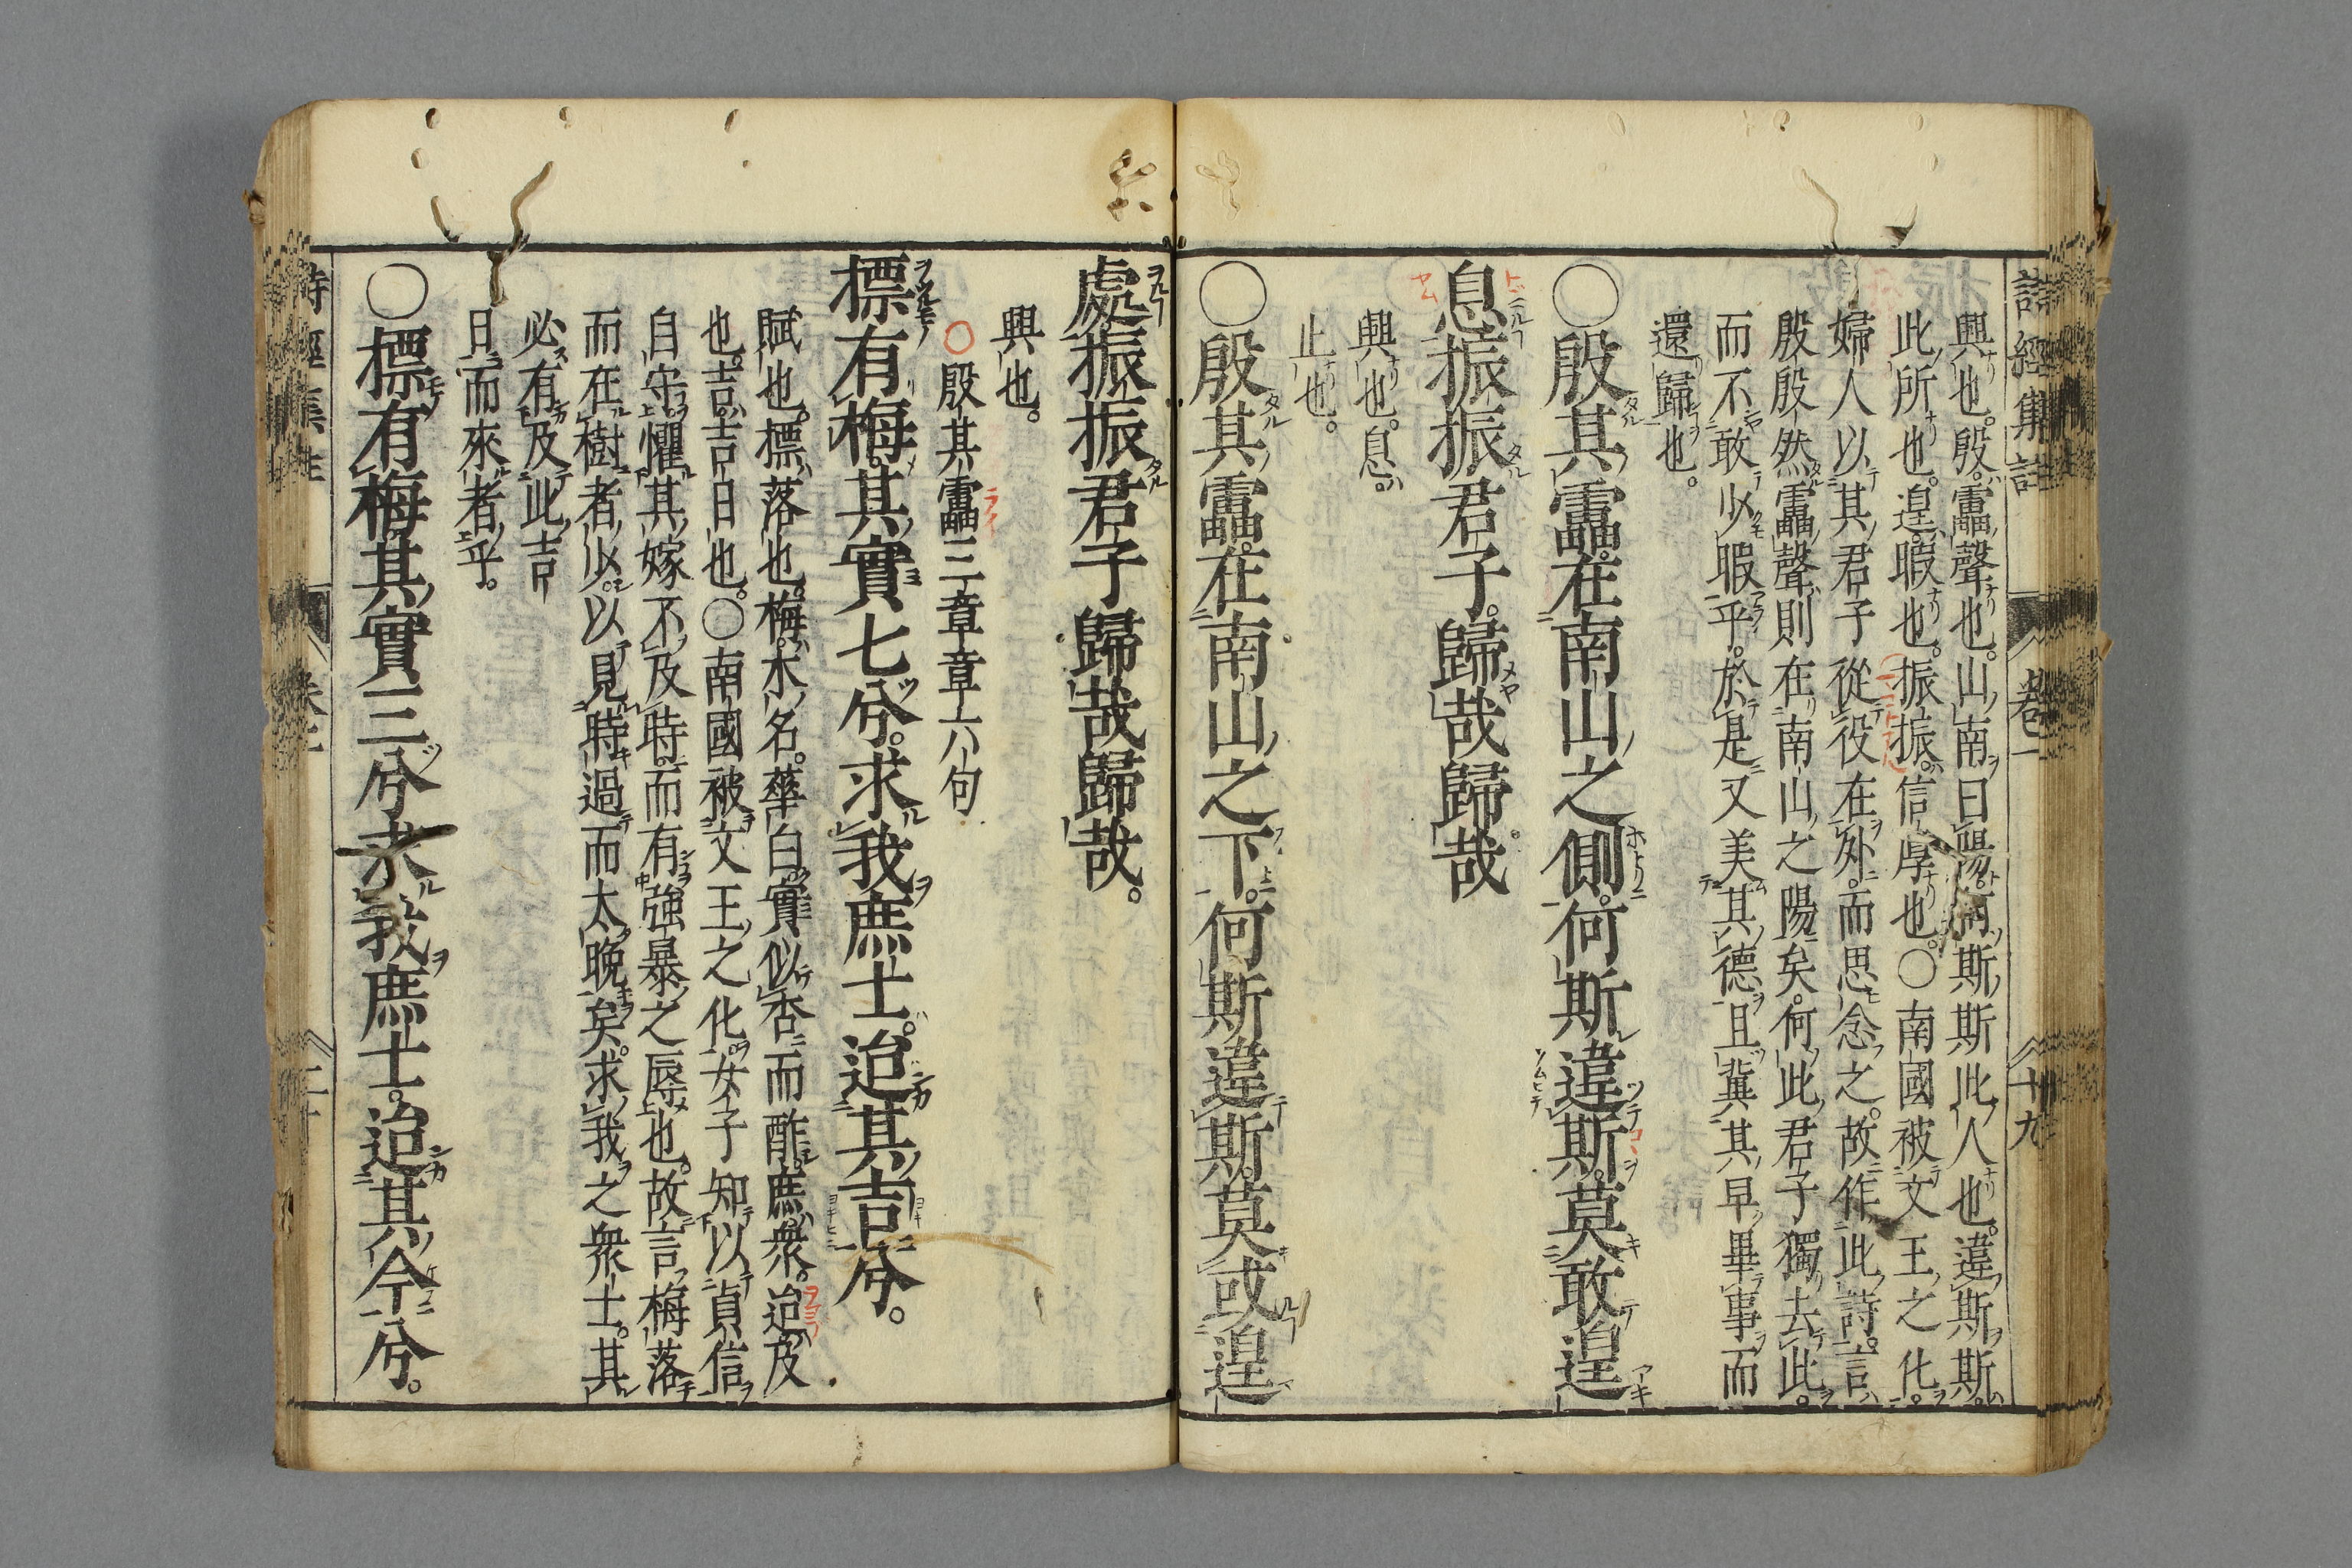 詩經集註 卷一 十九
興也。殷。靁聲也。山南曰陽。何斯斯此人也。違斯斯。
此所也。遑。暇也。振振。信厚也。○南國被文王之化。
婦人以其君子從役在外。而思念之。故作此詩。言
殷殷然靁聲。則在南山之陽矣。何此君子獨去此。
而不敢少暇乎。於是又美其德。且冀其早畢事而
還歸也。
○殷其靁。在南山之側。何斯違斯。莫敢遑
息。振振君子。歸哉歸哉
興也。息。
止也。
○殷其靁。在南山之下。何斯違斯。莫或遑
處。振振君子歸哉歸哉。
興也。
殷其靁三章章六句
摽有梅。其實七兮。求我庶士。迨其吉兮。
賦也。摽落也。梅。木名。華白實似杏而酢。庶衆。迨。及
也。吉。吉日也。○南國被文王之化。女子知以貞信
自守。懼其嫁不及時。而有強暴之辱也。故言梅落
而在樹者少。以見時過而太晩矣。求我之衆士。其
必有及此吉
日而來者乎。
○摽有梅。其實三兮。求我庶士。迨其今兮。
詩經集註 卷一 二十